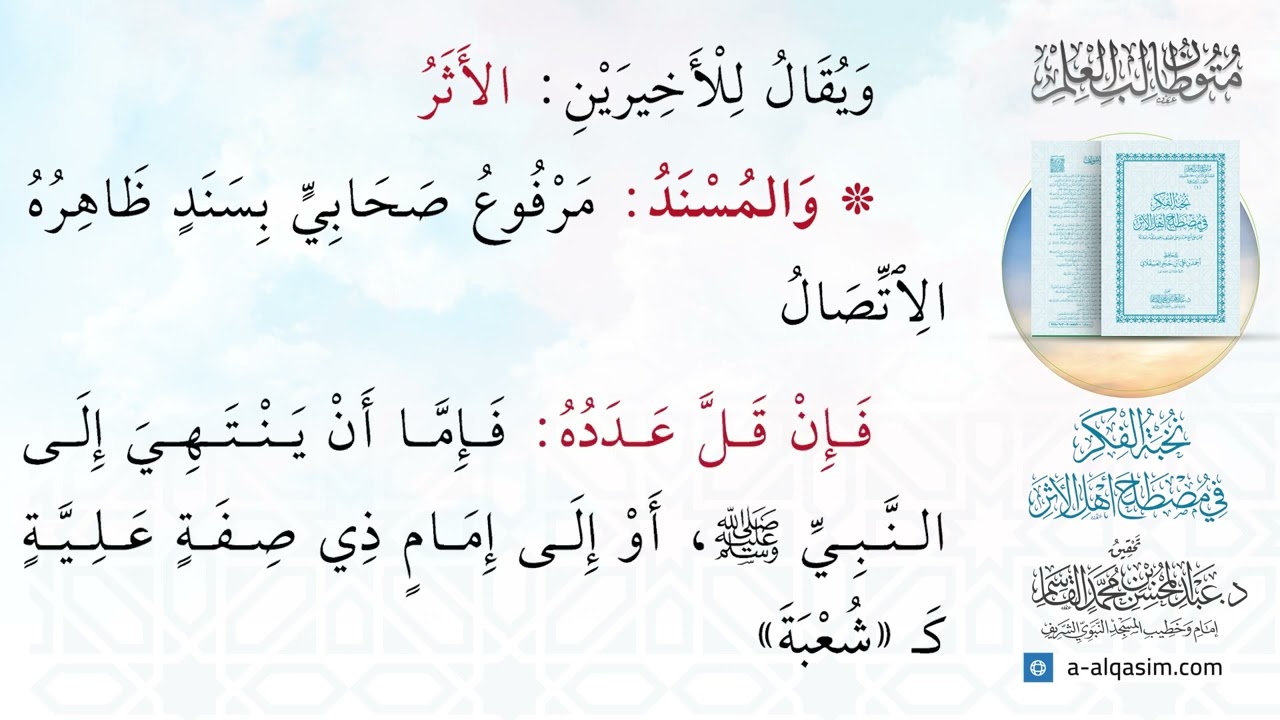 وَيُقَالُ لِلْأَخِيرَيْنِ: الأَثَرُ
❊ وَالمُسْنَدُ: مَرْفُوعُ صَحَابِيٍّ بِسَنَدٍ ظَاهِرُهُ
الِٱتِّصَالُ
فَإِنْ قَلَّ عَدَدُهُ: فَإِمَّا أَنْ يَنْتَهِيَ إِلَى
النَّبِيِّ ﷺ، أَوْ إِلَى إِمَامٍ ذِي صِفَةٍ عَلِيَّةٍ
كَـ «شُعْبَةَ»
مُتُونُ طَالِبِ العِلْمِ
نُخْبَةُ الفِكَرِ
فِي مُصْطَلَحِ أَهْلِ الأَثَرِ
نُخْبَةُ الفِكَرِ
فِي مُصْطَلَحِ أَهْلِ الأَثَرِ
تَحْقِيقُ
د. عَبْدِ المُحْسِنِ بْنِ مُحَمَّدٍ القَاسِمِ
إِمَامِ وَخَطِيبِ المَسْجِدِ النَّبَوِيِّ الشَّرِيفِ
a-alqasim.com